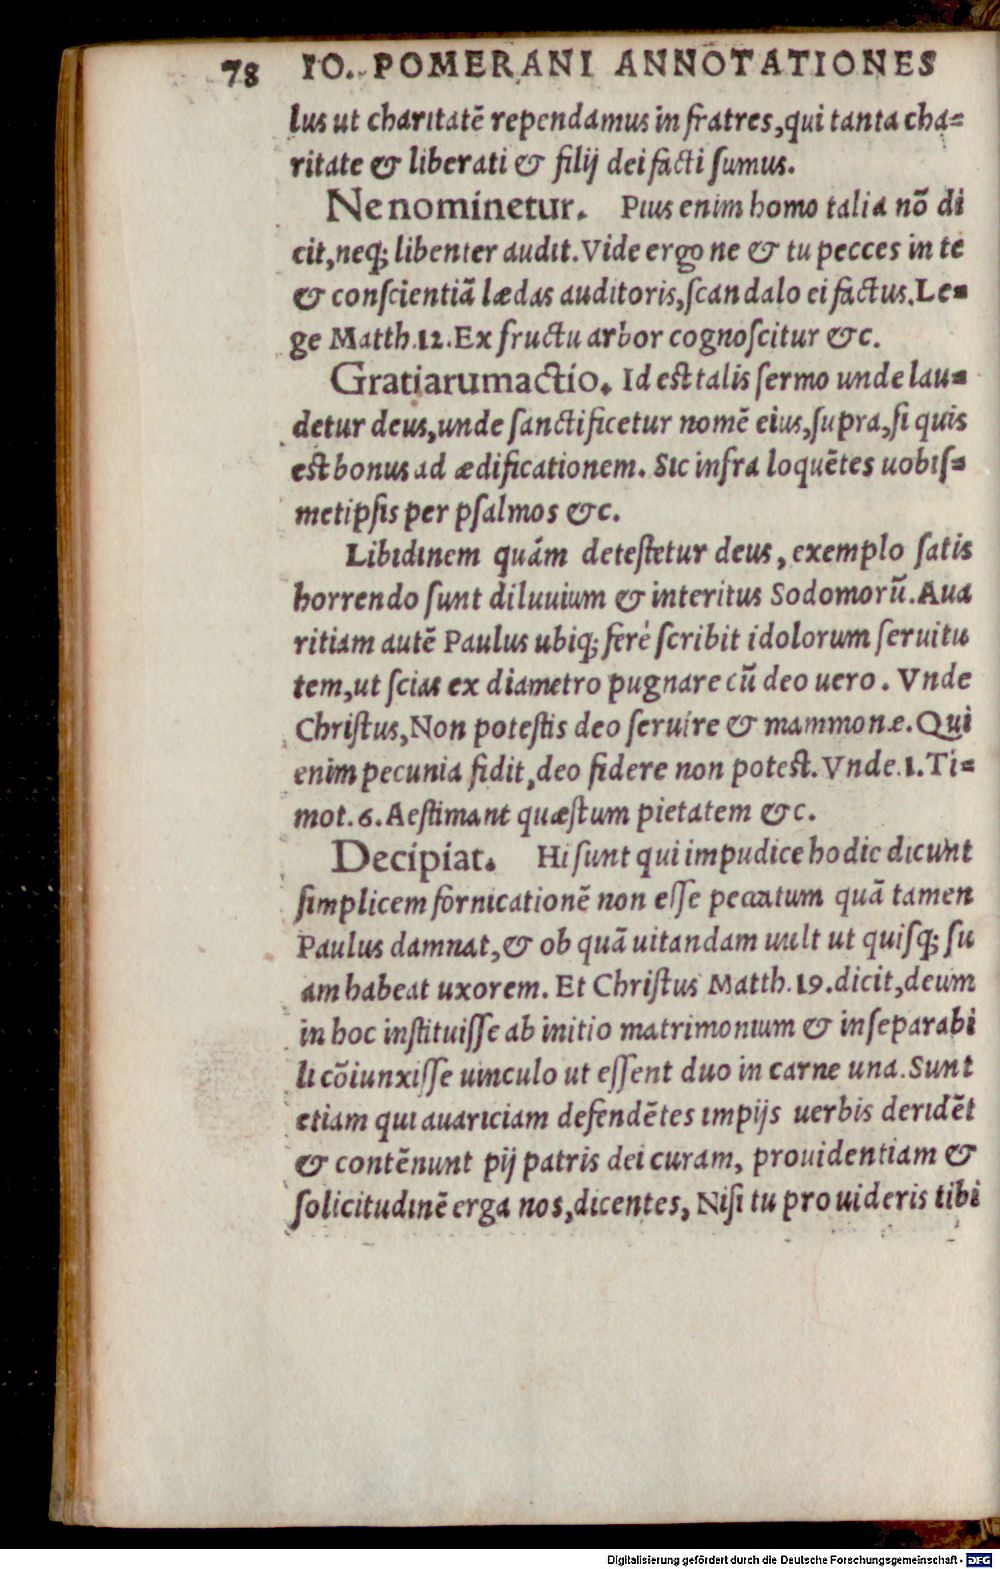 78 IO. POMERANI ANNOTATIONES
lus ut charitatē rependamus in fratres, qui tanta cha=
ritate & liberati & filij dei facti ſumus.
Ne nominetur. Pius enim homo talia nō di
cit, neq; libenter audit. Vide ergo ne & tu pecces in te
& conſcientiā lædas auditoris, ſcandalo ei factus. Le=
ge Matth. 12. Ex fructu arbor cognoſcitur &c.
Gratiarum actio. Id est talis ſermo unde lau=
detur deus, unde ſanctificetur nomē eius, ſupra, ſi quis
est bonus ad ædificationem. Sic infra loquētes uobiſ=
metipſis per pſalmos &c.
Libidinem quám deteſtetur deus, exemplo ſatis
horrendo ſunt diluuium & interitus Sodomorū. Aua
ritiam autē Paulus ubiq; ferè ſcribit idolorum ſeruitu
tem, ut ſcias ex diametro pugnare cū deo uero. Vnde
Chriſtus, Non poteſtis deo ſeruire & mammonæ. Qui
enim pecunia fidit, deo fidere non potest. Vnde. 1. Ti=
mot. 6. Aeſtimant quæſtum pietatem &c.
Decipiat. Hi ſunt qui impudice hodie dicunt
ſimplicem fornicationē non eſſe peccatum quā tamen
Paulus damnat, & ob quā uitandam uult ut quiſq; ſu
am habeat uxorem. Et Chriſtus Matth. 19. dicit, deum
in hoc inſtituiſſe ab initio matrimonium & inſeparabi
li cōiunxiſſe uinculo ut eſſent duo in carne una. Sunt
etiam qui auariciam defendētes impijs uerbis deridēt
& contēnunt pij patris dei curam, prouidentiam &
ſolicitudinē erga nos, dicentes, Niſi tu prouideris tibi
Digitalisierung gefördert durch die Deutsche Forschungsgemeinschaft - DFG